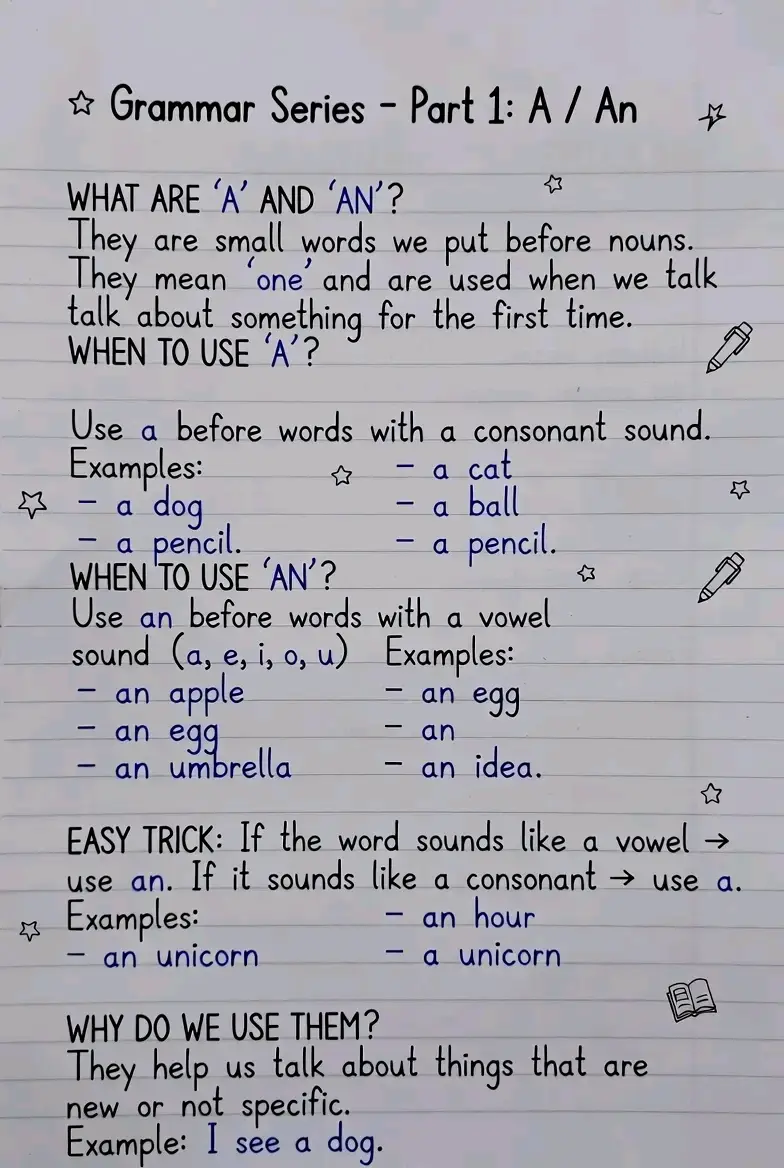 Grammar Series - Part 1: A / An
WHAT ARE 'A' AND 'AN'?
They are small words we put before nouns.
They mean 'one' and are used when we talk
talk about something for the first time.
WHEN TO USE 'A'?
Use a before words with a consonant sound.
Examples:
- a cat
- a dog
- a ball
- a pencil.
- a pencil.
WHEN TO USE 'AN'?
Use an before words with a vowel
sound (a, e, i, o, u) Examples:
- an apple
- an egg
- an egg
- an
- an umbrella
- an idea.
EASY TRICK: If the word sounds like a vowel →
use an. If it sounds like a consonant → use a.
Examples:
- an hour
- an unicorn
- a unicorn
WHY DO WE USE THEM?
They help us talk about things that are
new or not specific.
Example: I see a dog.